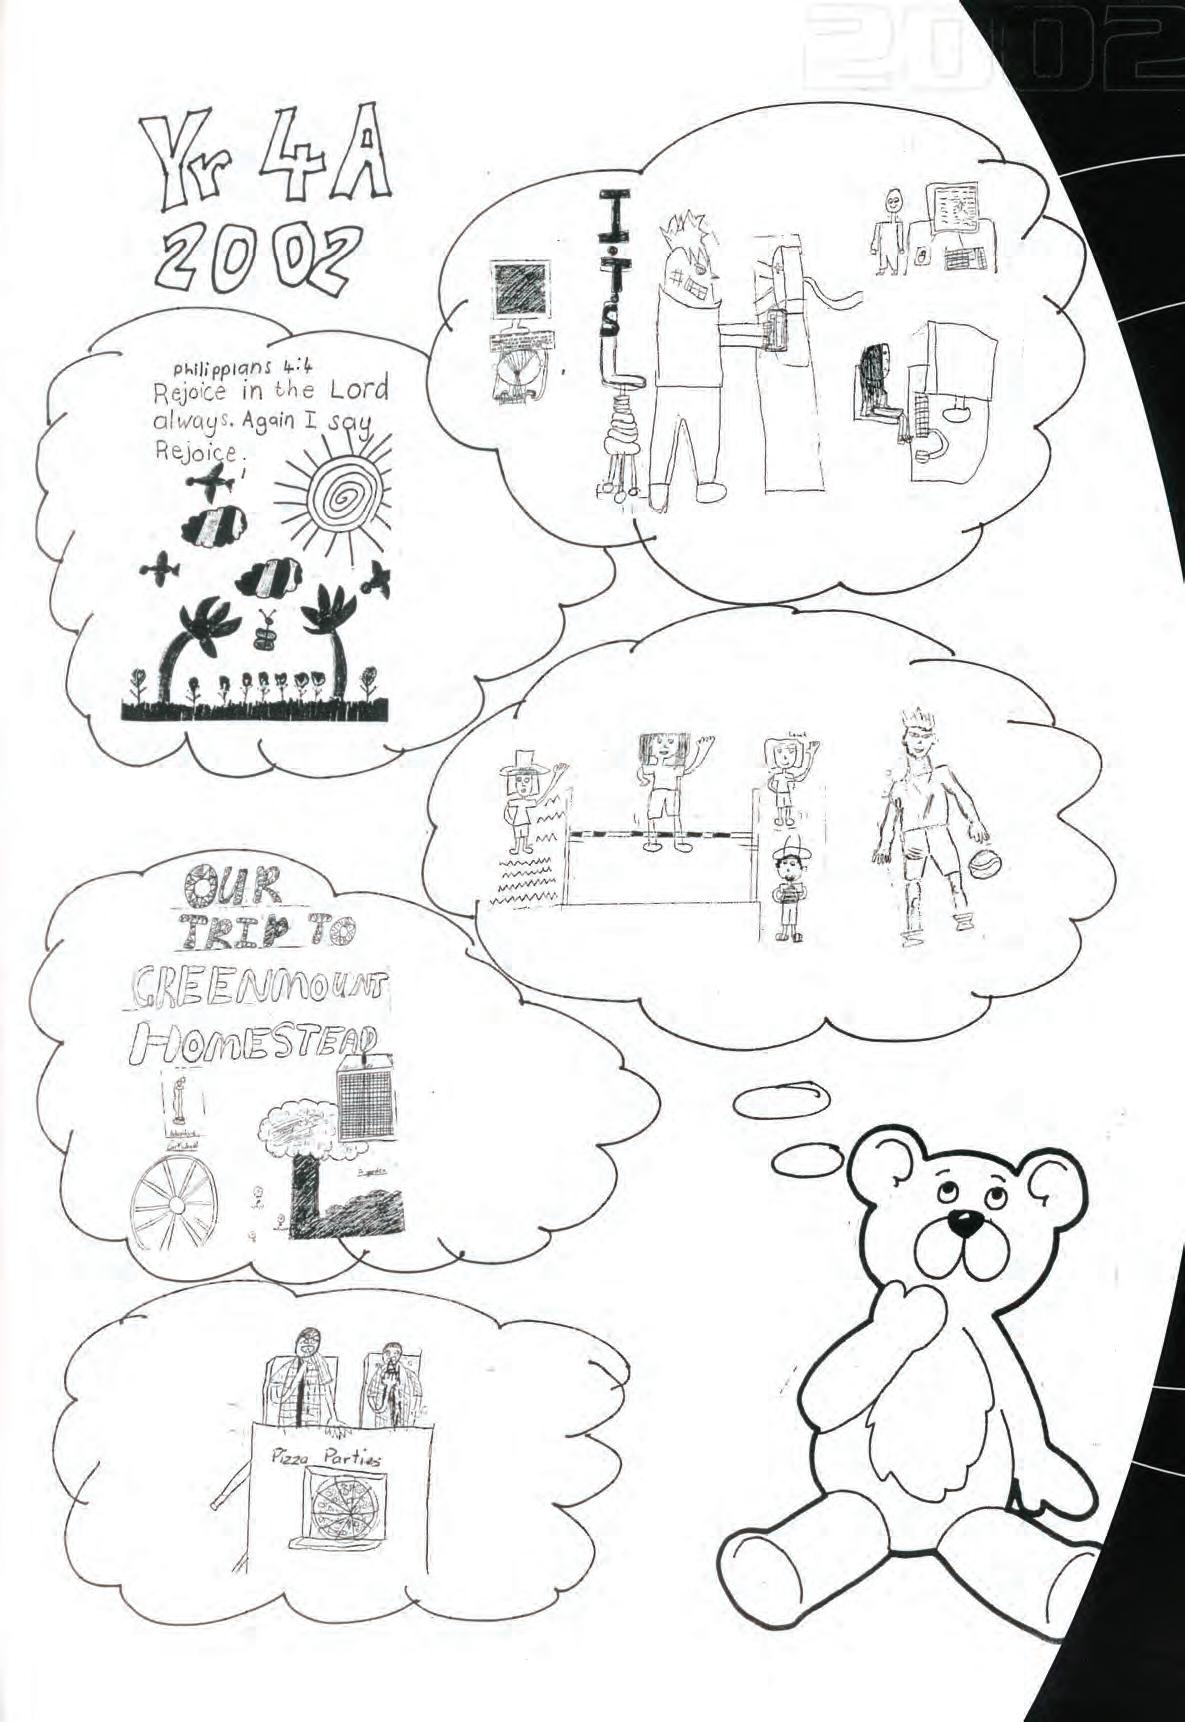 2002
Yr 4A
2002
I.T.S
philippians 4:4
Rejoice in the Lord
always. Again I say
Rejoice.
OUR
TRIP TO
GREENMOUNT
HOMESTEAD
Pizza Parties